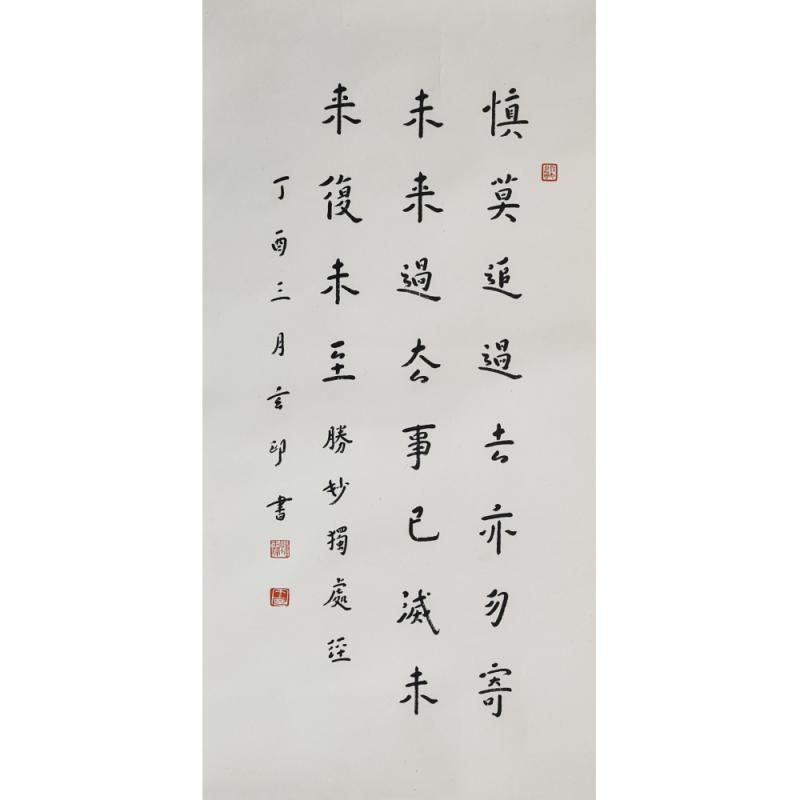 慎莫追過去亦勿寄
未来過去事已滅未
来復未至勝妙獨處経
丁酉三月玄印書